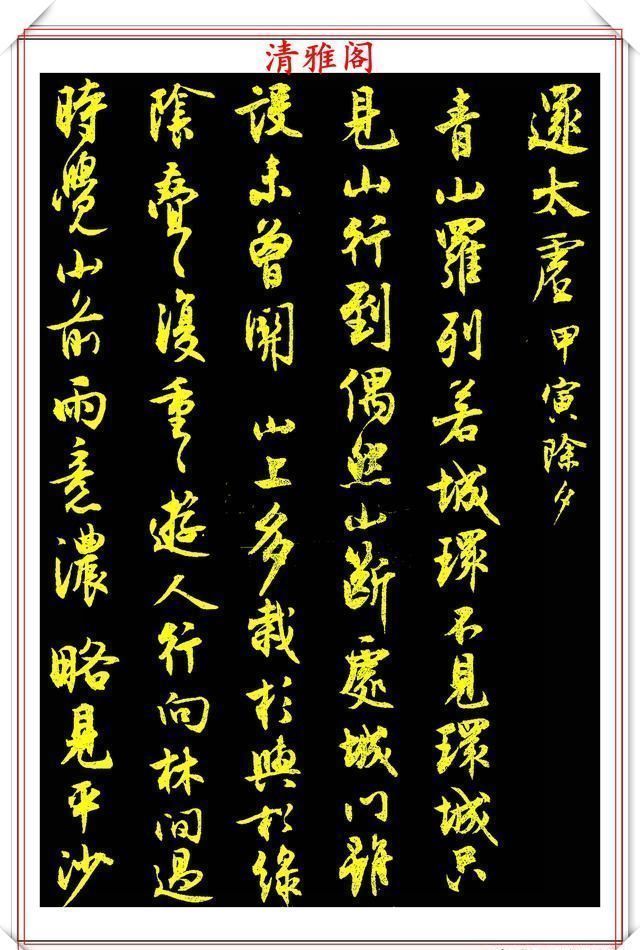 清雅阁
太虛 甲寅除夕
青山羅列若城環不見環城只
見山行到偶然山斷處城門雖
設未曾開 山上多栽杉與松綠
陰疊〻復重〻遊人行向林間過
時覺山前雨意濃 略見平沙